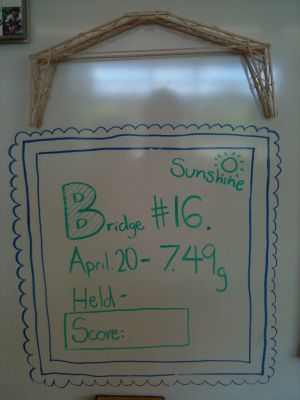 Sunshine
Bridge #16.
April. 20 - 7.49g
Held -
Score: